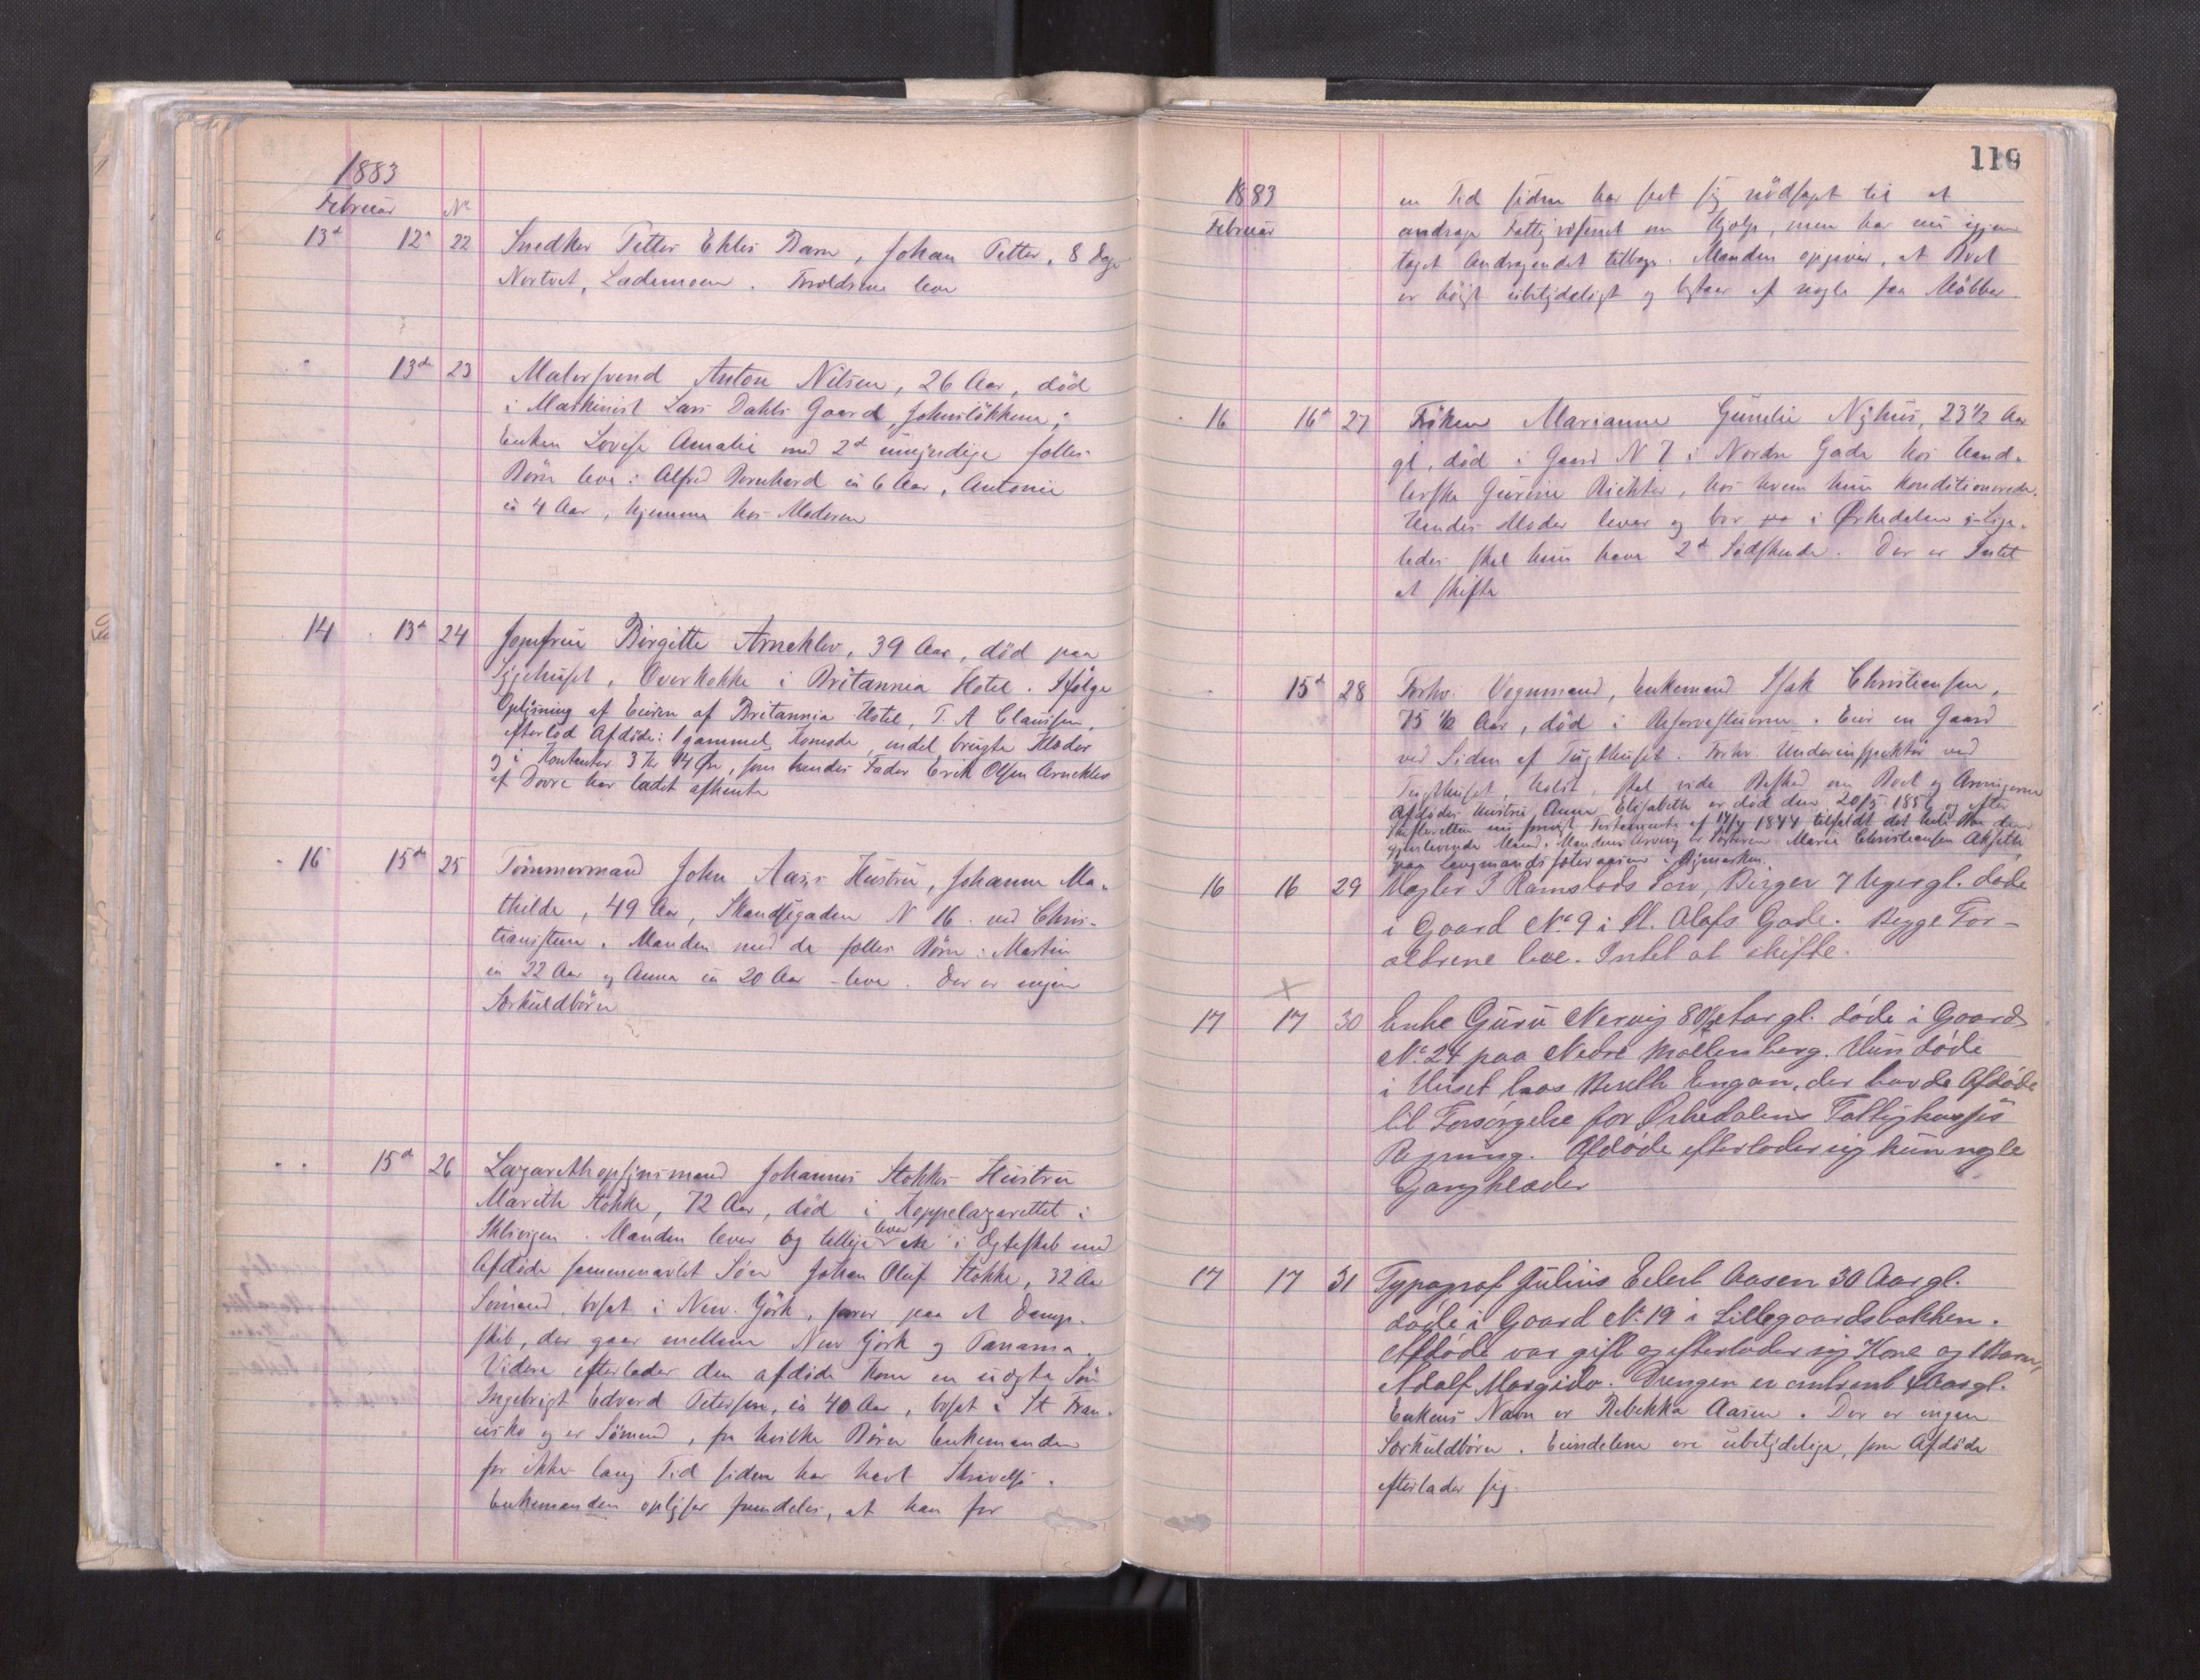 1883
Februar No
13d 12d 22 Snedker Petter Ekles Barn, Johan Petter, 8 Dage
Nortvet, Lademoen. Forældrene leve
" 13d 23 Malersvend Anton Nilsen, 26 Aar, død
i Maskinist Lars Dahls Gaard, Johnsløkken;
Enken Lovise Amalie med 2d umyndige fælles
Børn leve: Alfred Bernhard in 6 Aar, Antonie
in 4 Aar, hjemme hos Moderen
14 13d 24 Jomfru Birgitte Arneklev, 39 Aar, død paa
Sygehuset, Overkokke i Britannia Hotel. Ifølge
Oplysning af Eieren af Britannia Hotel, T. A Claussen,
efterlod Afdøde: 1 gammel Komode, endel brugte Klæder
og i Kontanter 3 Kr 14 Øre, som hendes Fader Erik Olsen Arneklev
af Dovre har ladet afhente
" 16 15de 25 Tømmermand John Aas's Hustru, Johanne Ma-
thilde, 49 Aar, Skandsegaden N 16 ved Chris-
tiansten. Manden med de fælles Børn: Martin
in 22 Aar og Anna in 20 Aar - leve. Der er ingen
Særkuldbørn
" " 15d 26 Lazarethopsynsmand Johannes Stokkes Hustru
Marith Stokke, 72 Aar, død i Koppelazarettet i
Ihlevigen. Manden lever og tillige lever en i Ægteskab med
Afdøde sammenavlet Søn Johan Oluf Stokke, 32 Aar
Sømand, bosat i New. York, farer paa et Damp-
skib, der gaar mellem New York og Panama.
Videre efterlader den afdøde Kone en uægte Søn
Ingebrigt Edvard Petersen, in 40 Aar, bosat i St Fran-
cisko og er Sømand, fra hvilke Børn Enkemanden
for ikke lang Tid siden har havt Skrivelse.
Enkemanden oplyser fremdeles, at han for
119
1883
Februar
en Tid siden har seet sig nødsaget til at
andrage Fattigvæsenet om Hjælp, men har nu igjen
taget Andragendet tilbage. Manden opgiver, at Boet
er høist ubetydeligt og bestaar af nogle faa Møbler.
16 16d 27 Frøken Marianne Gunelie Nyhus, 23 1/2 Aar
gl, død i Gaard N 7 i Nordre Gade hos Hand-
lerske Gurine Richter, hos hvem hun konditionerede.
Hendes Moder lever og bor i Ørkedalen. Lige-
ledes skal hun have 2d Sødskende. Der er Intet
at skifte
" 15d 28 Forhv. Vognmand, Enkemand Isak Christiansen,
75 1/2 Aar, død i Reservestuerne. Eier en Gaard
ved Siden af Tugthuset. Forhv. Underinspektør ved
Tugthuset, Holst, skal vide Besked om Boet og Arvingerne
Afdødes Hustru Anna Elisabeth er død den 20/5 1856 og efter
Skifteretten iflg Testamente af 14/4 1844 tilfaldt det hele Bo den
gjenlevende Mand. Mandens Arving er Søsteren Marie Christiansen Akseth
paa Langmands i Bymarken.
16 16 29 Mægler P Ramstads Søn, Birger 7 Uger gl. døde
i Gaard No 9 i St. Olafs Gade. Begge For-
ældrene leve. Intet at skifte.
17 17 30 Enke Guru Nervig 80 1/2 Aar gl. døde i Gaard
No 24 paa Nedre Møllenberg. Hun døde
i Huset hos Bereth Engan, der havde Afdøde
til Forsørgelse for Ørkedalens Fattigkasses
Regning. Afdøde efterlader sig kun nogle
Gangklæder
17 17 31 Typograf Julius Edert Aasen 30 Aar gl.
døde i Gaard No 19 i Lillegaardsbakken.
Afdøde var gift og efterlader sig Kone og 1 Barn,
Adolf Margido. Drengen er omtrent Aar gl.
Enkens Navn er Rebekka Aasen. Der er ingen
Særkuldbørn. Eiendelene ere ubetydelige, som Afdøde
efterlader sig.